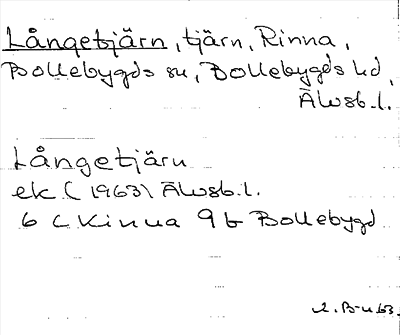 Långetjärn, tjärn, Rinna,
Bollebygds sn, Bollebygds hd,
Älvsb.l.
Långetjärn
ek (1963) Älvsb.l.
6 C Kinna 9 b Bollebygd